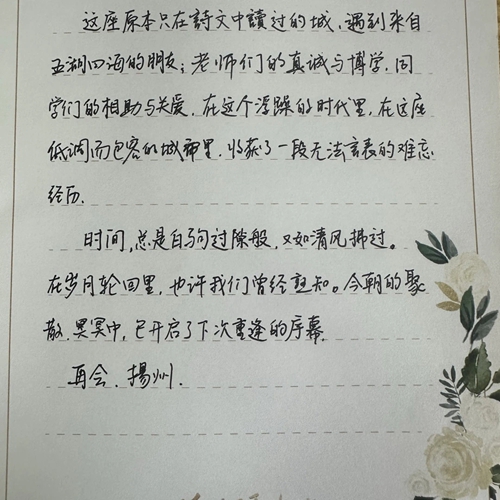 这座原本只在詩文中讀过的城,遇到来自
五湖四海的朋友;老师们的真诚与博学,同
学们的相助与关爱,在这个浮躁的时代里,在这座
低调而包容的城市里,收获了一段无法言表的难忘
经历.
时间,总是白驹过隙般,又如清风拂过。
在岁月轮回里,也许我们曾经熟知。今朝的聚
散,冥冥中,已开启了下次重逢的序幕.
再会,揚州.